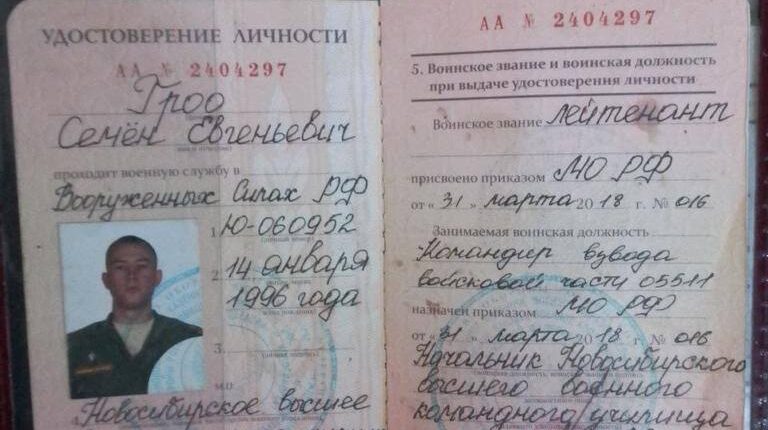 УДОСТОВЕРЕНИЕ ЛИЧНОСТИ
АА № 2404297
Гроо
Семён Евгеньевич
проходит военную службу в
Вооруженных Силах РФ
1. Ю-060952
(личный номер)
2. 14 января
1996 года
3.
М.П.
Новосибирское высшее
АА № 2404297
5. Воинское звание и воинская должность
при выдаче удостоверения личности
Воинское звание лейтенант
присвоено приказом МО РФ
от «31» марта 2018 г. № 016
Занимаемая воинская должность
Командир взвода
войсковой части 05511
назначен приказом МО РФ
от «31» марта 2018 г. № 016
Начальник Новосибирского
высшего военного
командного училища